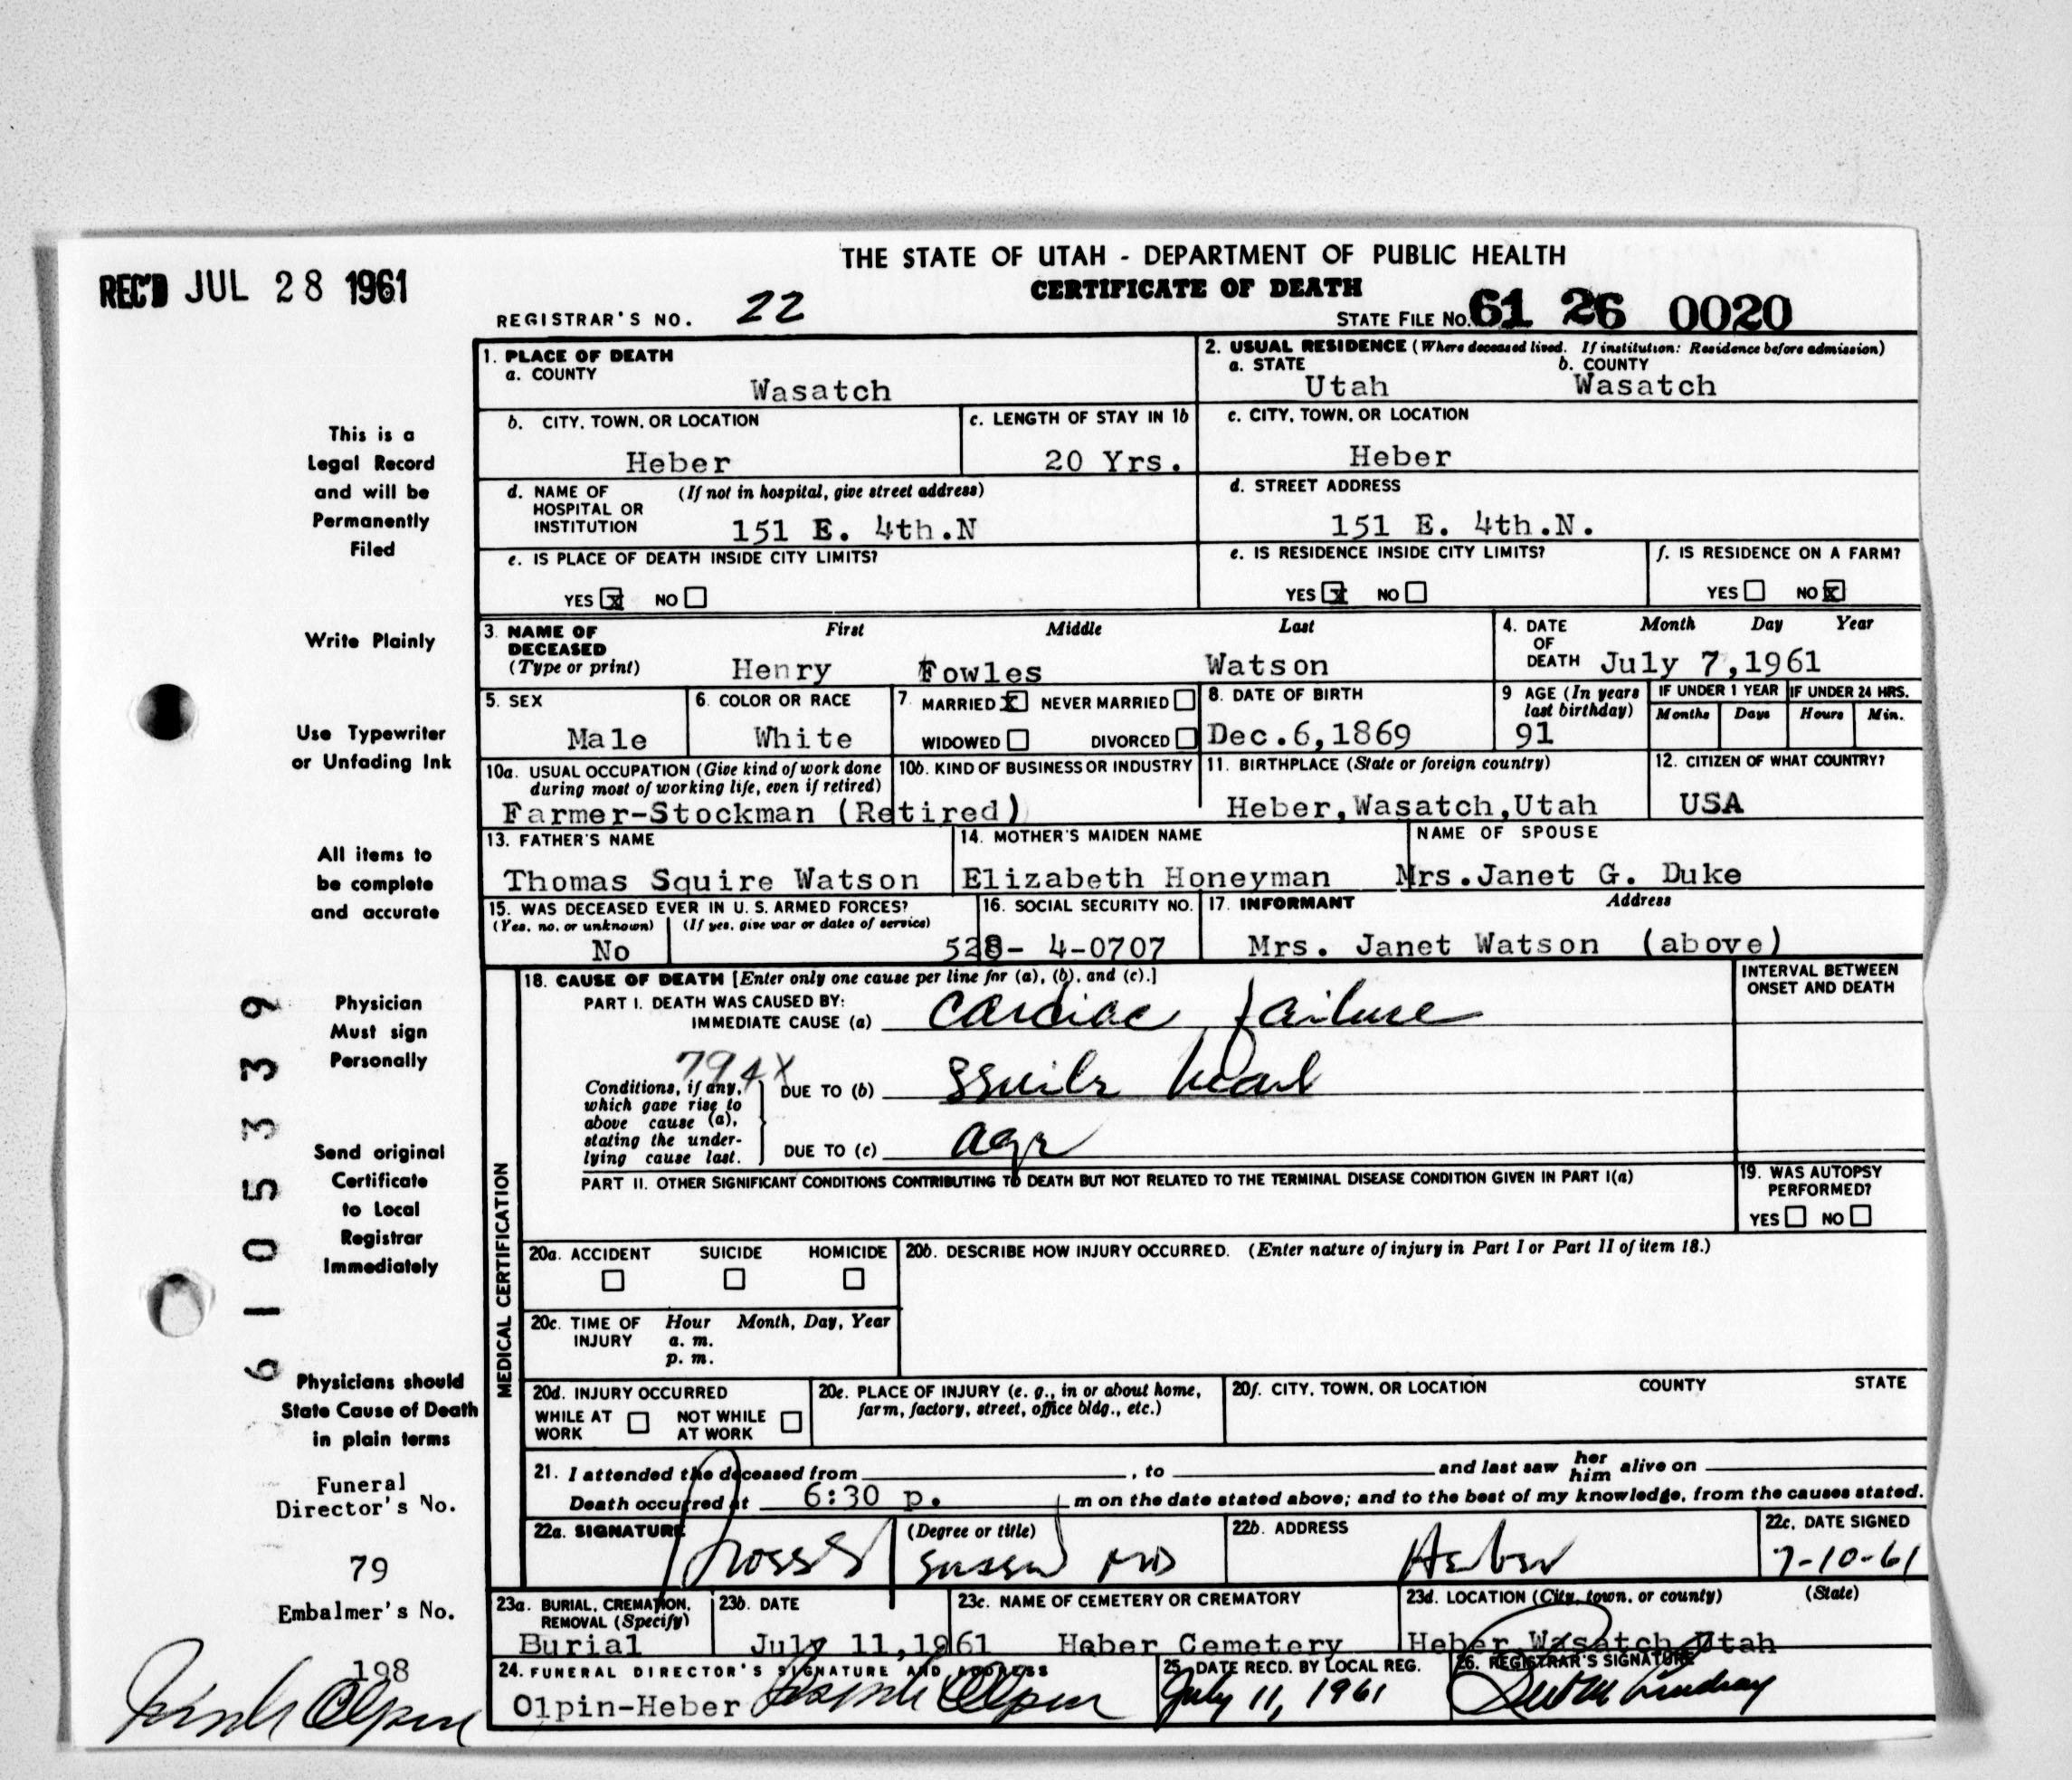 THE STATE OF UTAH - DEPARTMENT OF PUBLIC HEALTH
CERTIFICATE OF DEATH
REC'D JUL 28 1961
REGISTRAR'S NO. 22
STATE FILE NO. 61 26 0020
1. PLACE OF DEATH
a. COUNTY
Wasatch
2. USUAL RESIDENCE (Where deceased lived. If institution: Residence before admission)
a. STATE b. COUNTY
Utah Wasatch
b. CITY, TOWN, OR LOCATION
Heber
c. LENGTH OF STAY IN 1b
20 Yrs.
c. CITY, TOWN, OR LOCATION
Heber
d. NAME OF (If not in hospital, give street address)
HOSPITAL OR
INSTITUTION
151 E. 4th.N
d. STREET ADDRESS
151 E. 4th.N.
e. IS PLACE OF DEATH INSIDE CITY LIMITS?
YES X NO
e. IS RESIDENCE INSIDE CITY LIMITS?
YES X NO
f. IS RESIDENCE ON A FARM?
YES NO X
3. NAME OF First Middle Last
DECEASED
(Type or print) Henry Fowles Watson
4. DATE Month Day Year
OF
DEATH July 7,1961
5. SEX
Male
6. COLOR OR RACE
White
7. MARRIED X NEVER MARRIED
WIDOWED DIVORCED
8. DATE OF BIRTH
Dec.6,1869
9 AGE (In years
last birthday)
91
IF UNDER 1 YEAR IF UNDER 24 HRS.
Months Days Hours Min.
10a. USUAL OCCUPATION (Give kind of work done
during most of working life, even if retired)
Farmer-Stockman (Retired)
10b. KIND OF BUSINESS OR INDUSTRY
11. BIRTHPLACE (State or foreign country)
Heber,Wasatch,Utah
12. CITIZEN OF WHAT COUNTRY?
USA
13. FATHER'S NAME
Thomas Squire Watson
14. MOTHER'S MAIDEN NAME
Elizabeth Honeyman
NAME OF SPOUSE
Mrs.Janet G. Duke
15. WAS DECEASED EVER IN U. S. ARMED FORCES?
(Yes, no, or unknown) (If yes, give war or dates of service)
No
16. SOCIAL SECURITY NO.
528- 4-0707
17. INFORMANT Address
Mrs. Janet Watson (above)
MEDICAL CERTIFICATION
18. CAUSE OF DEATH [Enter only one cause per line for (a), (b), and (c).]
PART I. DEATH WAS CAUSED BY:
IMMEDIATE CAUSE (a) Cardiac failure
INTERVAL BETWEEN
ONSET AND DEATH
794X
Conditions, if any,
which gave rise to
above cause (a),
stating the under-
lying cause last.
DUE TO (b) Senile heart
DUE TO (c) age
PART II. OTHER SIGNIFICANT CONDITIONS CONTRIBUTING TO DEATH BUT NOT RELATED TO THE TERMINAL DISEASE CONDITION GIVEN IN PART I(a)
19. WAS AUTOPSY
PERFORMED?
YES NO
20a. ACCIDENT SUICIDE HOMICIDE
20b. DESCRIBE HOW INJURY OCCURRED. (Enter nature of injury in Part I or Part II of item 18.)
20c. TIME OF Hour Month, Day, Year
INJURY a. m.
p. m.
20d. INJURY OCCURRED
WHILE AT NOT WHILE
WORK AT WORK
20e. PLACE OF INJURY (e. g., in or about home,
farm, factory, street, office bldg., etc.)
20f. CITY, TOWN, OR LOCATION COUNTY STATE
21. I attended the deceased from , to and last saw her him alive on
Death occurred at 6:30 p. m on the date stated above; and to the best of my knowledge, from the causes stated.
22a. SIGNATURE (Degree or title)
MD
22b. ADDRESS
Heber
22c. DATE SIGNED
7-10-61
23a. BURIAL, CREMATION,
REMOVAL (Specify)
Burial
23b. DATE
July 11,1961
23c. NAME OF CEMETERY OR CREMATORY
Heber Cemetery
23d. LOCATION (City, town, or county) (State)
Heber Wasatch Utah
24. FUNERAL DIRECTOR'S SIGNATURE AND ADDRESS
Olpin-Heber Joseph Olpin
25. DATE RECD. BY LOCAL REG.
July 11, 1961
26. REGISTRAR'S SIGNATURE
This is a
Legal Record
and will be
Permanently
Filed
Write Plainly
Use Typewriter
or Unfading Ink
All items to
be complete
and accurate
Physician
Must sign
Personally
Send original
Certificate
to Local
Registrar
Immediately
Physicians should
State Cause of Death
in plain terms
Funeral
Director's No.
79
Embalmer's No.
198
Joseph Olpin
61 05339